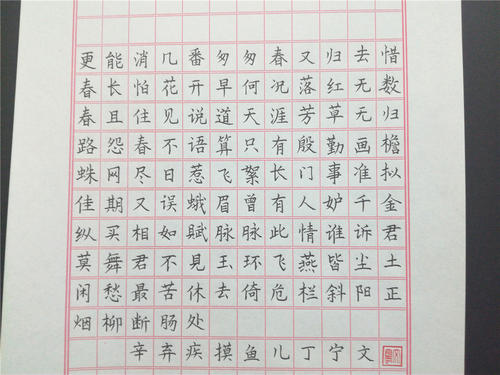 更能消几番匆匆春又归去惜
春长怕花开早何况落红无数
春且住见说道天涯芳草无归
路怨春不语算只有殷勤画檐
蛛网尽日惹飞絮长门事准拟
佳期又误蛾眉曾有人妒千金
纵买相如赋脉脉此情谁诉君
莫舞君不見玉环飞燕皆尘土
闲愁最苦休去倚危栏斜阳正
烟柳断肠处
辛弃疾摸鱼儿丁宁文